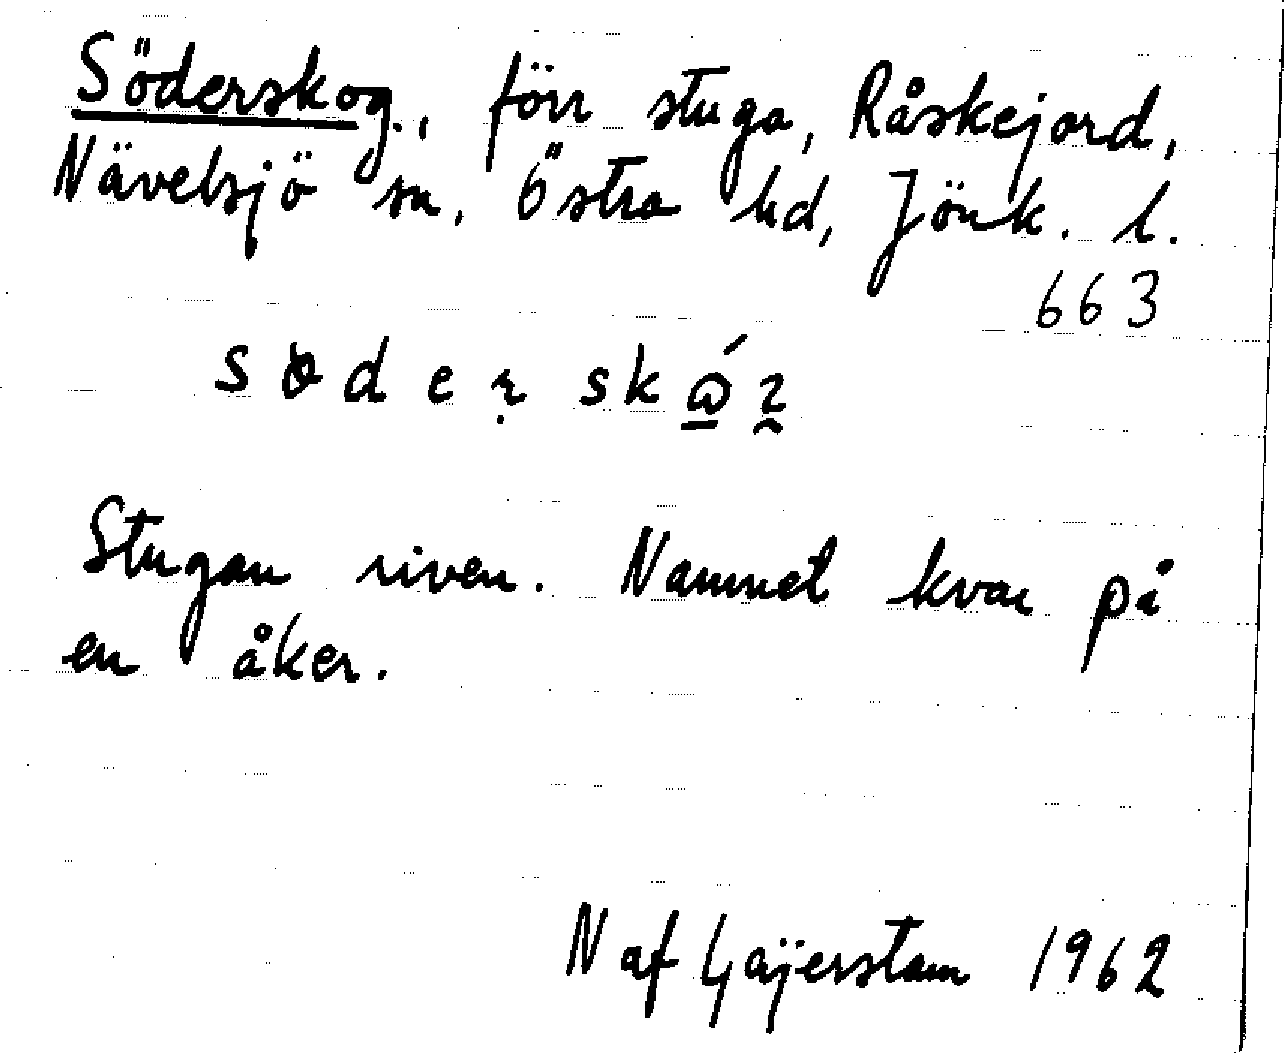 Söderskog., förr stuga, Råskejord,
Nävelsjö sn, Östra hd, Jönk. l.
663
Stugan riven. Namnet kvar på
en åker.
N af Gäijerstam 1962